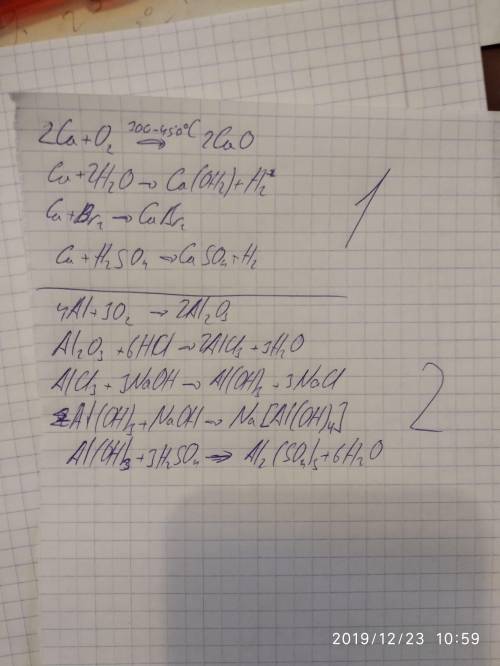 2Ca+O₂ 300-450°C ⇒ 2CaO
Ca+2H₂O→Ca(OH₂)+H₂
Ca+Br₂→CaBr₂
Ca+H₂SO₄→CaSO₄+H₂
1
4Al+3O₂→2Al₂O₃
Al₂O₃+6HCl→2AlCl₃+3H₂O
AlCl₃+3NaOH→Al(OH)₃+3NaCl
Al(OH)₃+NaOH→Na[Al(OH)₄]
Al(OH)₃+3H₂SO₄→Al₂(SO₄)₃+6H₂O
2
2019/12/23 10:59